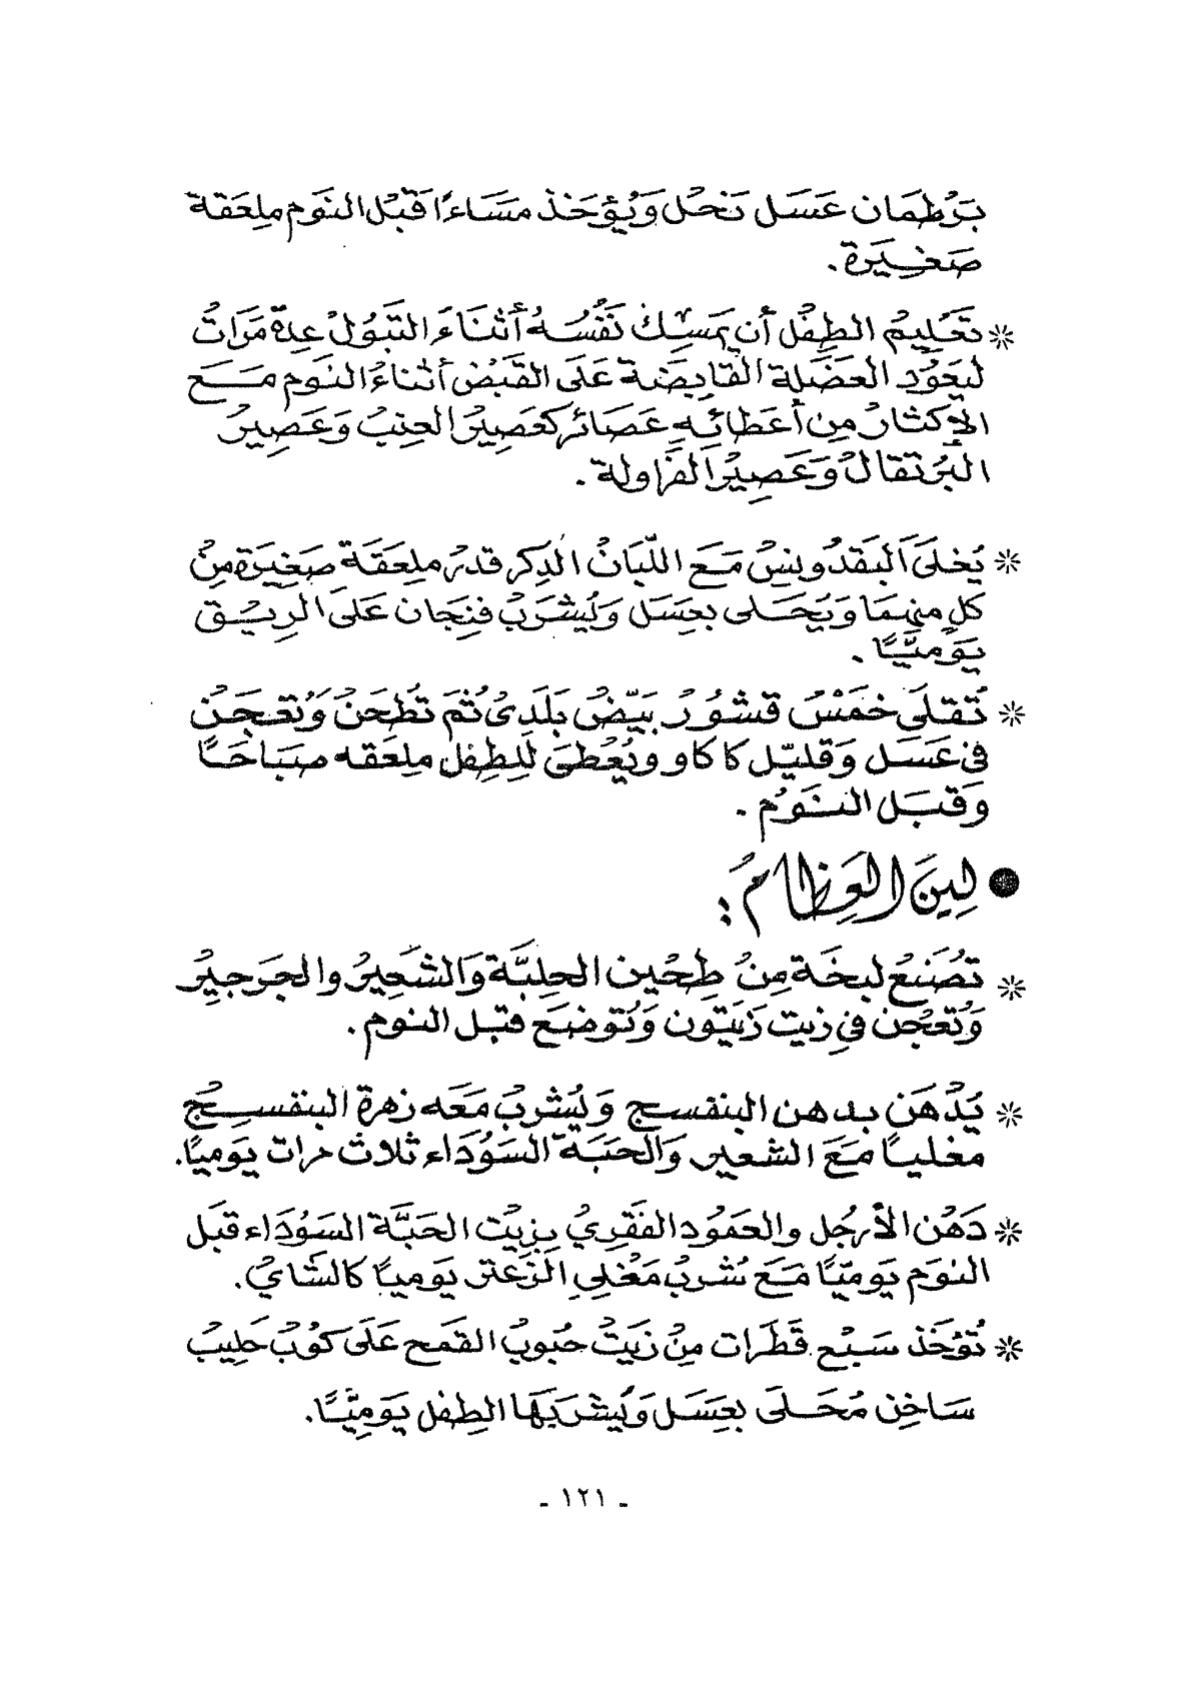 برطمان عسل نحل ويؤخذ مساءًا قبل النوم ملعقة
صغيرة .
* تعليم الطفل أن يمسك نفسه أثناء التبول عدة مرات
ليعود العضلة القابضة على القبض أثناء النوم مع
الإكثار من أعطائه عصائر كعصير العنب وعصير
البرتقال وعصير الفراولة .
* يغلى البقدونس مع اللبان الدكر قدر ملعقة صغيرة من
كل منهما ويحلى بعسل ويشرب فنجان على الريق
يوميًا .
* تقلى خمس قشور بيض بلدى ثم تطحن وتعجن
فى عسل وقليل كاكاو ويعطى للطفل ملعقه صباحًا
وقبل النوم .
● لين العظام :
* تصنع لبخة من طحين الحلبة والشعير والجرجير
وتعجن في زيت زيتون وتوضع قبل النوم .
* يدهن بدهن البنفسج ويشرب معه زهرة البنفسج
مغليًا مع الشعير والحبة السوداء ثلاث مرات يوميًا.
* دهن الأرجل والعمود الفقري بزيت الحبة السوداء قبل
النوم يوميًا مع شرب مغلي الزعتر يوميًا كالشاي.
* تؤخذ سبع قطرات من زيت حبوب القمح على كوب حليب
ساخن محلى بعسل ويشربها الطفل يوميًا.
- ١٢١ -